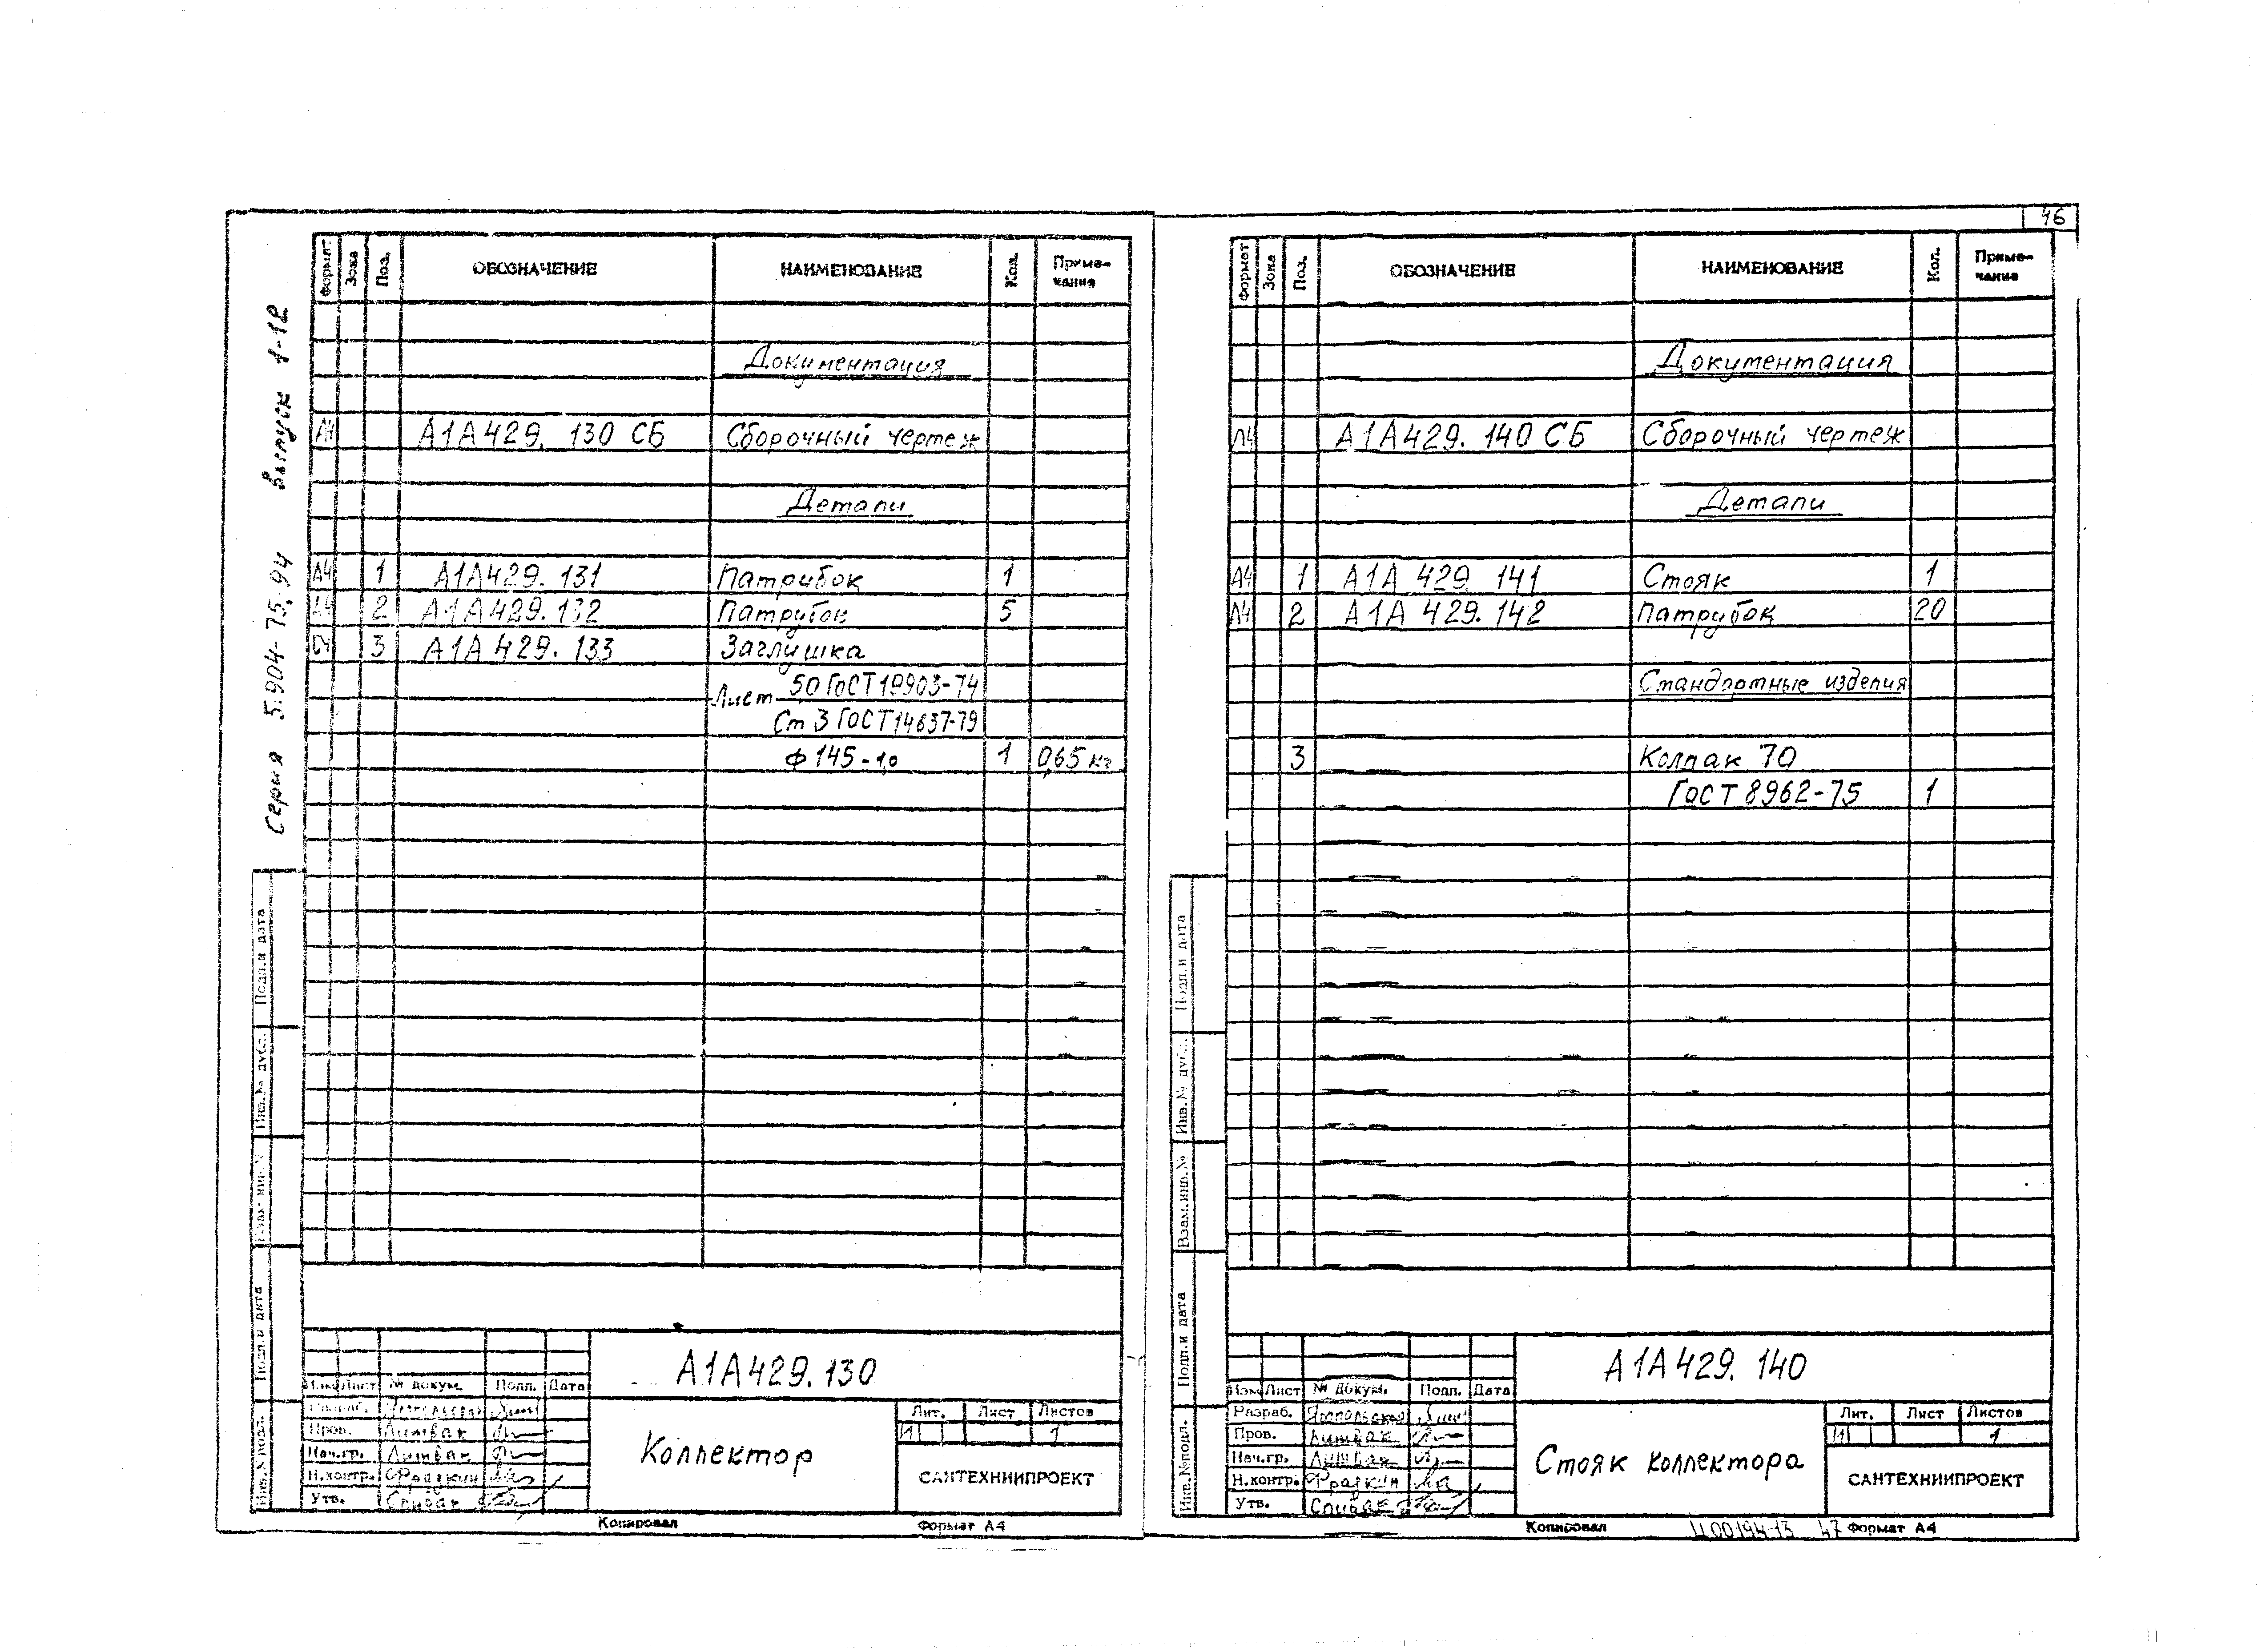 46
Серия 5.904-75.94 Выпуск 1-12
Формат Зона Поз. ОБОЗНАЧЕНИЕ НАИМЕНОВАНИЕ Кол. Приме-
чание
Документация
А4 А1А429. 130 СБ Сборочный чертеж
Детали
А4 1 А1А429. 131 Патрубок 1
А4 2 А1А429. 132 Патрубок 5
БЧ 3 А1А429. 133 Заглушка
Лист 50 ГОСТ 19903-74
Ст 3 ГОСТ 14637-79
Ф 145-1,0 1 0,65 кг
Подп.и дата
Инв.№ дубл.
Взам.инв.№
Подп.и дата
Инв.№подл.
А1А429.130
Изм Лист № докум. Подп. Дата
Разраб. Ямпольская
Пров. Литвак
Нач.гр. Литвак
Н.контр. Фрадкин
Утв. Спивак
Коллектор
Лит. Лист Листов
И 1
САНТЕХНИИПРОЕКТ
Копировал Формат А4
Формат Зона Поз. ОБОЗНАЧЕНИЕ НАИМЕНОВАНИЕ Кол. Приме-
чание
Документация
А4 А1А429. 140 СБ Сборочный чертеж
Детали
А4 1 А1А 429. 141 Стояк 1
А4 2 А1А 429. 142 Патрубок 20
Стандартные изделия
3 Колпак 70
ГОСТ 8962-75 1
Подп.и дата
Инв.№ дубл.
Взам.инв.№
Подп.и дата
Инв.№подл.
А1А429. 140
Изм Лист № докум. Подп. Дата
Разраб. Ямпольская
Пров. Литвак
Нач.гр. Литвак
Н.контр. Фрадкин
Утв. Спивак
Стояк коллектора
Лит. Лист Листов
И 1
САНТЕХНИИПРОЕКТ
Копировал Ц00194-13 47 Формат А4